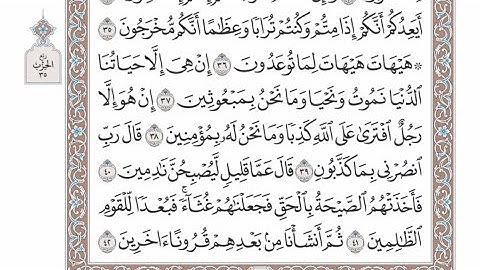 أَيَعِدُكُمْ أَنَّكُمْ إِذَا مِتُّمْ وَكُنتُمْ تُرَابًا وَعِظَٰمًا أَنَّكُم مُّخْرَجُونَ ٣٥
۞ هَيْهَاتَ هَيْهَاتَ لِمَا تُوعَدُونَ ٣٦ إِنْ هِىَ إِلَّا حَيَاتُنَا
ٱلدُّنْيَا نَمُوتُ وَنَحْيَا وَمَا نَحْنُ بِمَبْعُوثِينَ ٣٧ إِنْ هُوَ إِلَّا
رَجُلٌ ٱفْتَرَىٰ عَلَى ٱللَّهِ كَذِبًا وَمَا نَحْنُ لَهُۥ بِمُؤْمِنِينَ ٣٨ قَالَ رَبِّ
ٱنصُرْنِى بِمَا كَذَّبُونِ ٣٩ قَالَ عَمَّا قَلِيلٍ لَّيُصْبِحُنَّ نَٰدِمِينَ ٤٠
فَأَخَذَتْهُمُ ٱلصَّيْحَةُ بِٱلْحَقِّ فَجَعَلْنَٰهُمْ غُثَآءً ۚ فَبُعْدًا لِّلْقَوْمِ
ٱلظَّٰلِمِينَ ٤١ ثُمَّ أَنشَأْنَا مِنۢ بَعْدِهِمْ قُرُونًا ءَاخَرِينَ ٤٢
ربع
الحزب
٣٥